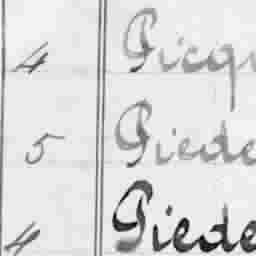 4 Picqu
5 Piede
4 Piede